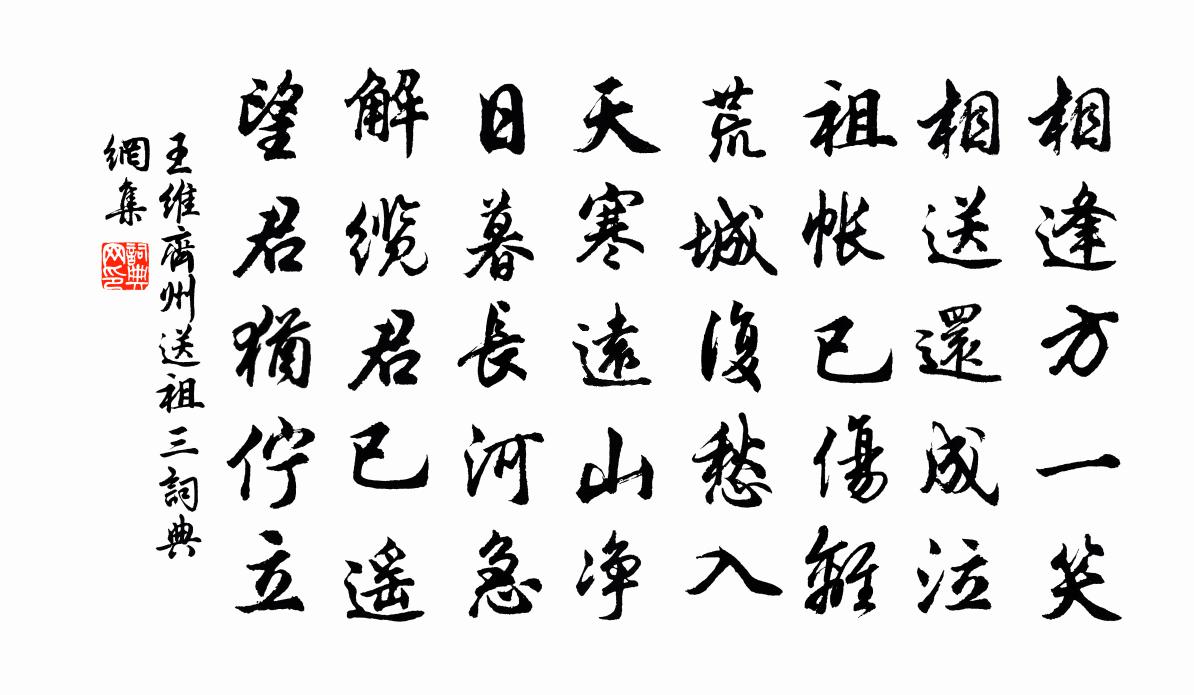 相逢方一笑
相送還成泣
祖帳已傷離
荒城復愁入
天寒遠山净
日暮長河急
解纜君已遥
望君猶佇立
王維齊州送祖三詞典
網集
詞典
网印